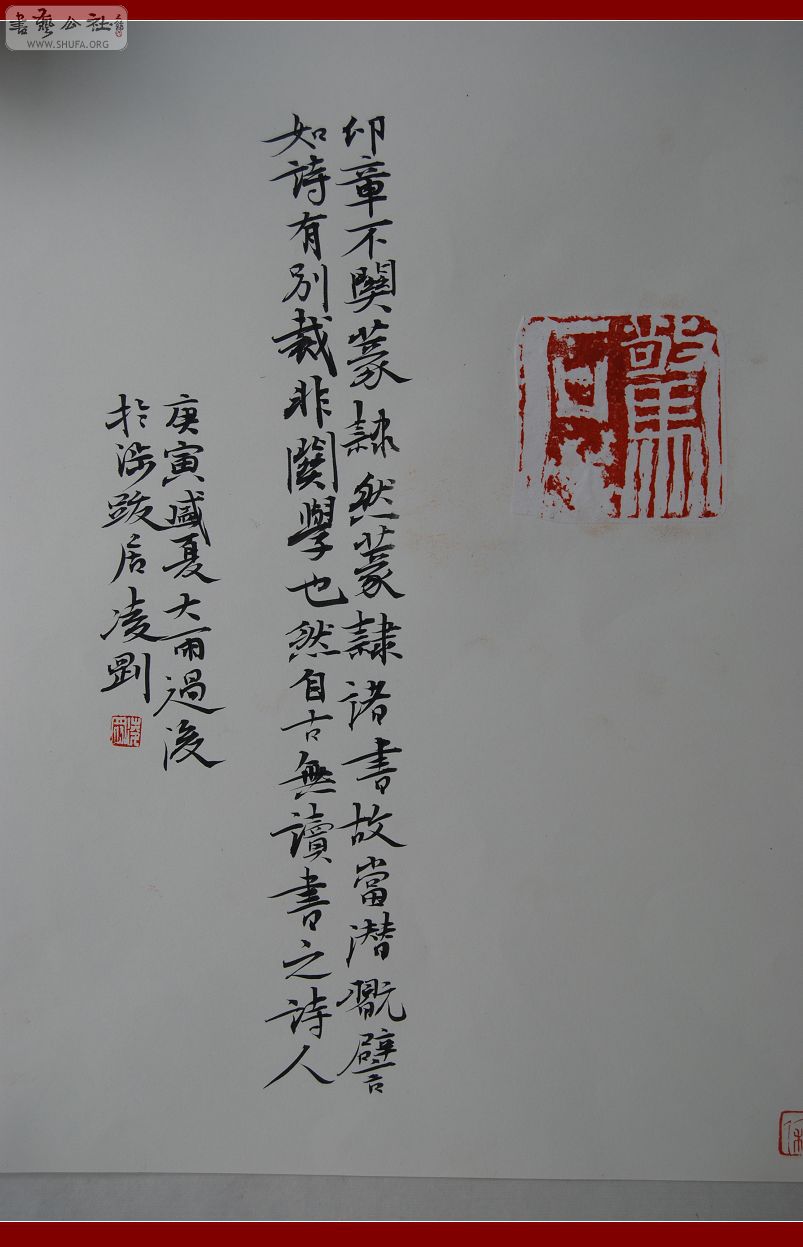 書藝公社
WWW.SHUFA.ORG
驚
印章不關篆隸然篆隸諸書故當潛翫譬
如詩有別裁非關學也然自古無讀書之詩人
庚寅盛夏大雨過後
於居凌剛